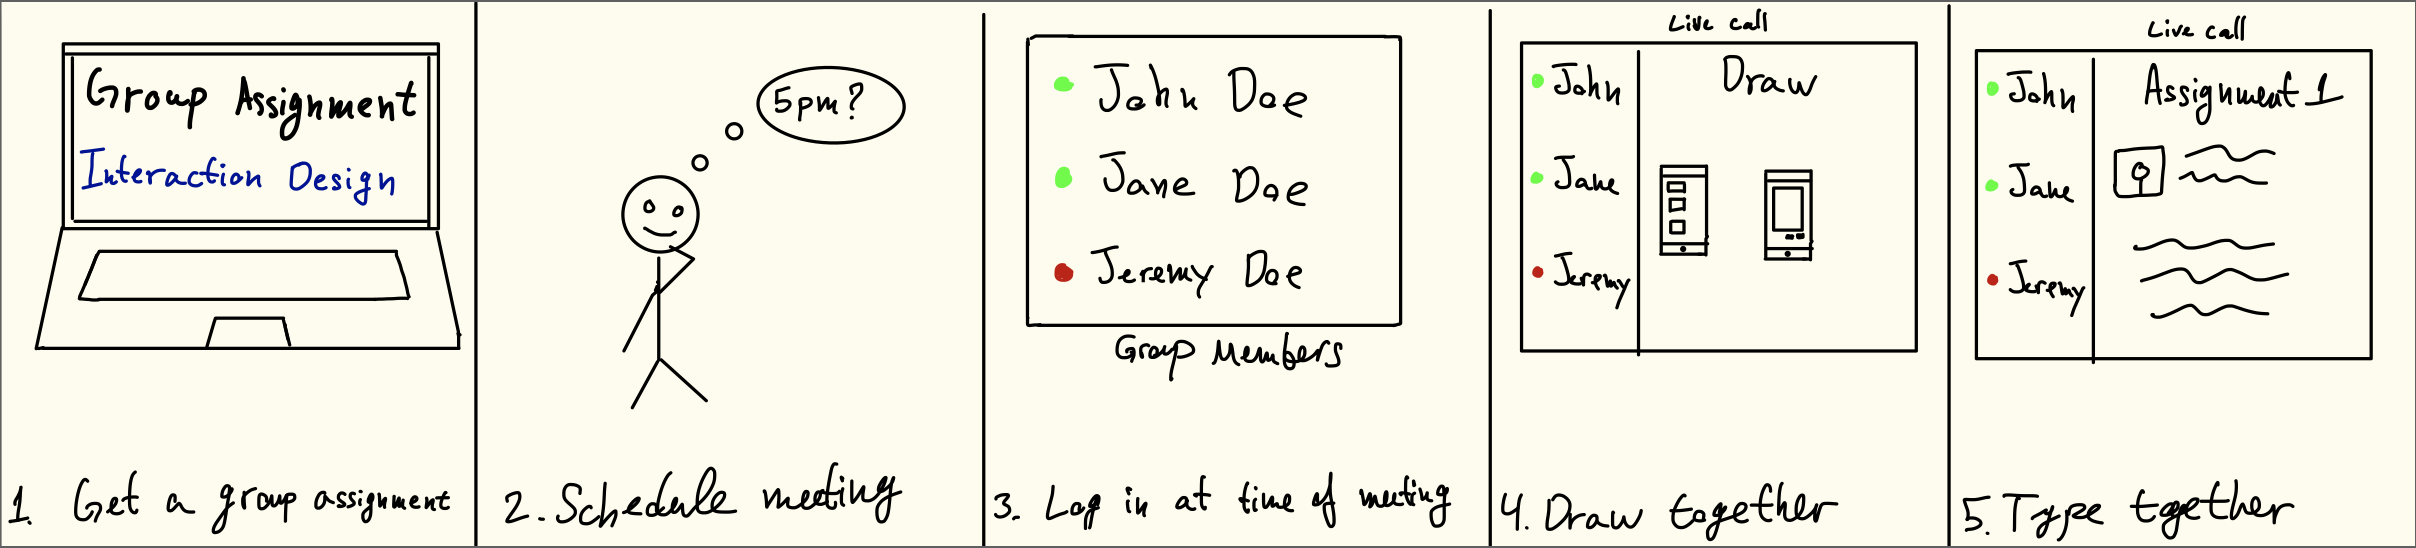 Group Assignment
Interaction Design
1. Get a group assignment
5pm?
2. Schedule meeting
John Doe
Jane Doe
Jeremy Doe
Group Members
3. Log in at time of meeting
Live call
John
Jane
Jeremy
Draw
4. Draw together
Live call
John
Jane
Jeremy
Assignment 1
5. Type together